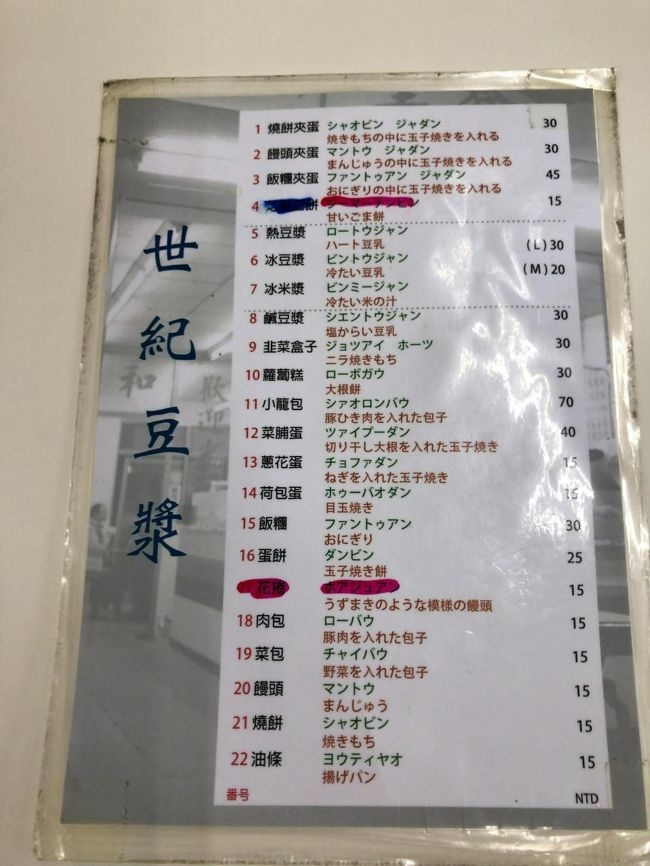 世紀豆漿
1 燒餅夾蛋 シャオビン ジャダン 30
焼きもちの中に玉子焼きを入れる
2 饅頭夾蛋 マントウ ジャダン 30
まんじゅうの中に玉子焼きを入れる
3 飯糰夾蛋 ファントゥアン ジャダン 45
おにぎりの中に玉子焼きを入れる
4 餅 15
甘いごま餅
5 熱豆漿 ロートウジャン
ハート豆乳 (L) 30
6 冰豆漿 ビントウジャン
冷たい豆乳 (M) 20
7 冰米漿 ビンミージャン
冷たい米の汁
8 鹹豆漿 シエントウジャン 30
塩からい豆乳
9 韭菜盒子 ジョツアイ ホーツ 30
ニラ焼きもち
10 蘿蔔糕 ローボガウ 30
大根餅
11 小龍包 シァオロンバウ 70
豚ひき肉を入れた包子
12 菜脯蛋 ツァイプーダン 40
切り干し大根を入れた玉子焼き
13 蔥花蛋 チョファダン 15
ねぎを入れた玉子焼き
14 荷包蛋 ホゥーバオダン 15
目玉焼き
15 飯糰 ファントゥアン 30
おにぎり
16 蛋餅 ダンビン 25
玉子焼き餅
花捲 ホアジュアン 15
うずまきのような模様の饅頭
18 肉包 ローバウ 15
豚肉を入れた包子
19 菜包 チャイバウ 15
野菜を入れた包子
20 饅頭 マントウ 15
まんじゅう
21 燒餅 シャオビン 15
焼きもち
22 油條 ヨウティヤオ 15
揚げパン
番号 NTD